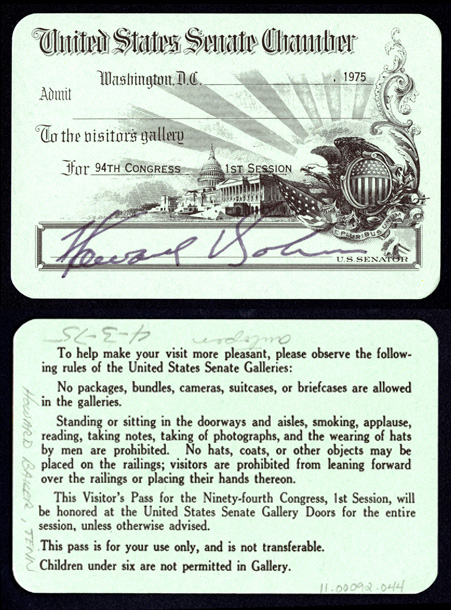 United States Senate Chamber
Washington, D.C. , 1975
Admit
To the visitor's gallery
For 94TH CONGRESS 1ST SESSION
E PLURIBUS UNUM
Howard
U.S. SENATOR
4-3-75 autopen
To help make your visit more pleasant, please observe the follow-
ing rules of the United States Senate Galleries:
No packages, bundles, cameras, suitcases, or briefcases are allowed
in the galleries.
Standing or sitting in the doorways and aisles, smoking, applause,
reading, taking notes, taking of photographs, and the wearing of hats
by men are prohibited. No hats, coats, or other objects may be
placed on the railings; visitors are prohibited from leaning forward
over the railings or placing their hands thereon.
This Visitor's Pass for the Ninety-fourth Congress, 1st Session, will
be honored at the United States Senate Gallery Doors for the entire
session, unless otherwise advised.
This pass is for your use only, and is not transferable.
Children under six are not permitted in Gallery.
HOWARD BAKER, TENN
11.00092.044